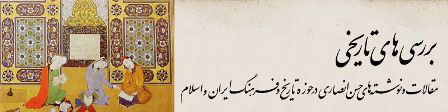 بررسی های تاریخی
مقالات و نوشته های حسن انصاری در حوزه تاریخ و فرهنگ ایران و اسلام